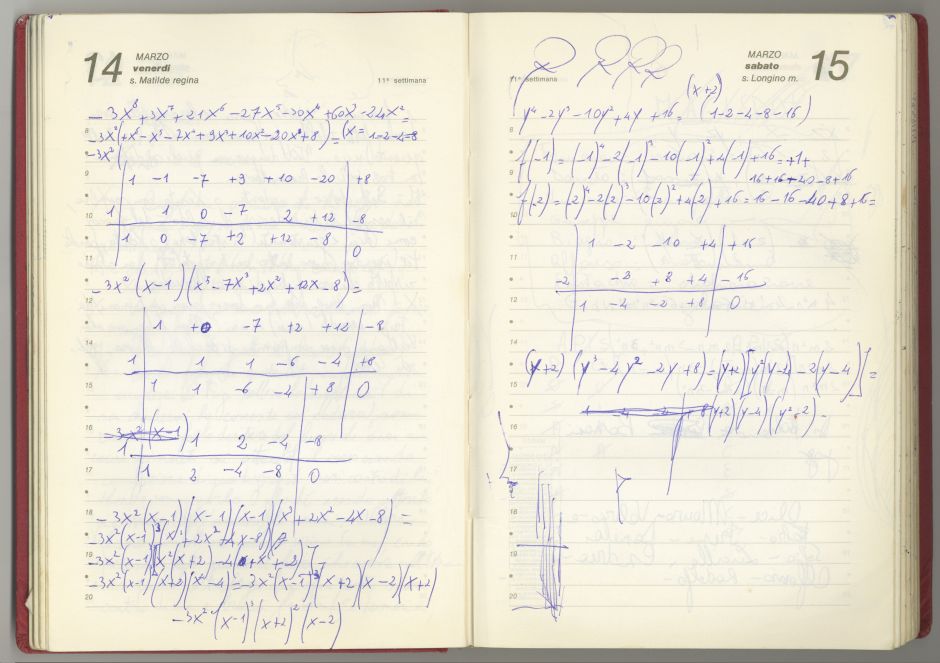 14
MARZO
venerdì
s. Matilde regina
11ª settimana
-3x⁸+3x⁷+21x⁶-27x⁵-30x⁴+60x³-24x²=
-3x²(x⁶-x⁵-7x⁴+9x³+10x²-20x+8)=(x= 1-2-4-8
-3x²(
1 -1 -7 +9 +10 -20 +8
1 1 0 -7 2 +12 -8
1 0 -7 +2 +12 -8 0
-3x²(x-1)(x⁵-7x³+2x²+12x-8)=
1 +0 -7 +2 +12 -8
1 1 1 -6 -4 +8
1 1 -6 -4 +8 0
-3x²(x-1)
1 1 2 -4 -8
1 2 -4 -8 0
-3x²(x-1)(x-1)(x-1)(x³+2x²-4x-8)=
-3x²(x-1)³(x³+2x²-4x-8)
-3x²(x-1)³[x²(x+2)-4(x+2)]
-3x²(x-1)³(x+2)(x²-4)=-3x²(x-1)³(x+2)(x-2)(x+2)
-3x²(x-1)³(x+2)²(x-2)
8
9
10
11
12
14
15
16
17
18
19
20
MARZO
sabato
s. Longino m.
15
11ª settimana
(x+2)
y⁴-2y³-10y²+4y+16= (1-2-4-8-16)
f(-1)=(-1)⁴-2(-1)³-10(-1)²+4(-1)+16=+1+
16+16-40-8+16
f(2)=(2)⁴-2(2)³-10(2)²+4(2)+16=16-16-40+8+16=
1 -2 -10 +4 +16
-2 -2 +8 +4 -16
1 -4 -2 +8 0
(y+2)(y³-4y²-2y+8)=(y+2)[y²(y-4)-2(y-4)]=
(y+2)(y-4)(y²-2)-